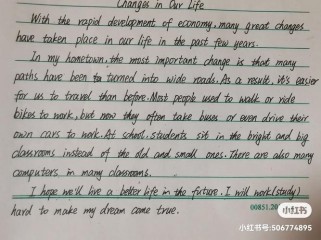 Changes in Our Life
With the rapid development of economy, many great changes
have taken place in our life in the past few years.
In my hometown, the most important change is that many
paths have been to turned into wide roads. As a result, it's easier
for us to travel than before. Most people used to walk or ride
bikes to work, but now they often take buses or even drive their
own cars to work. At school, students sit in the bright and big
classrooms instead of the old and small ones. There are also many
computers in many classrooms.
I hope we'll live a better life in the future. I will work(study)
hard to make my dream come true.
小红书
小红书号:506774895